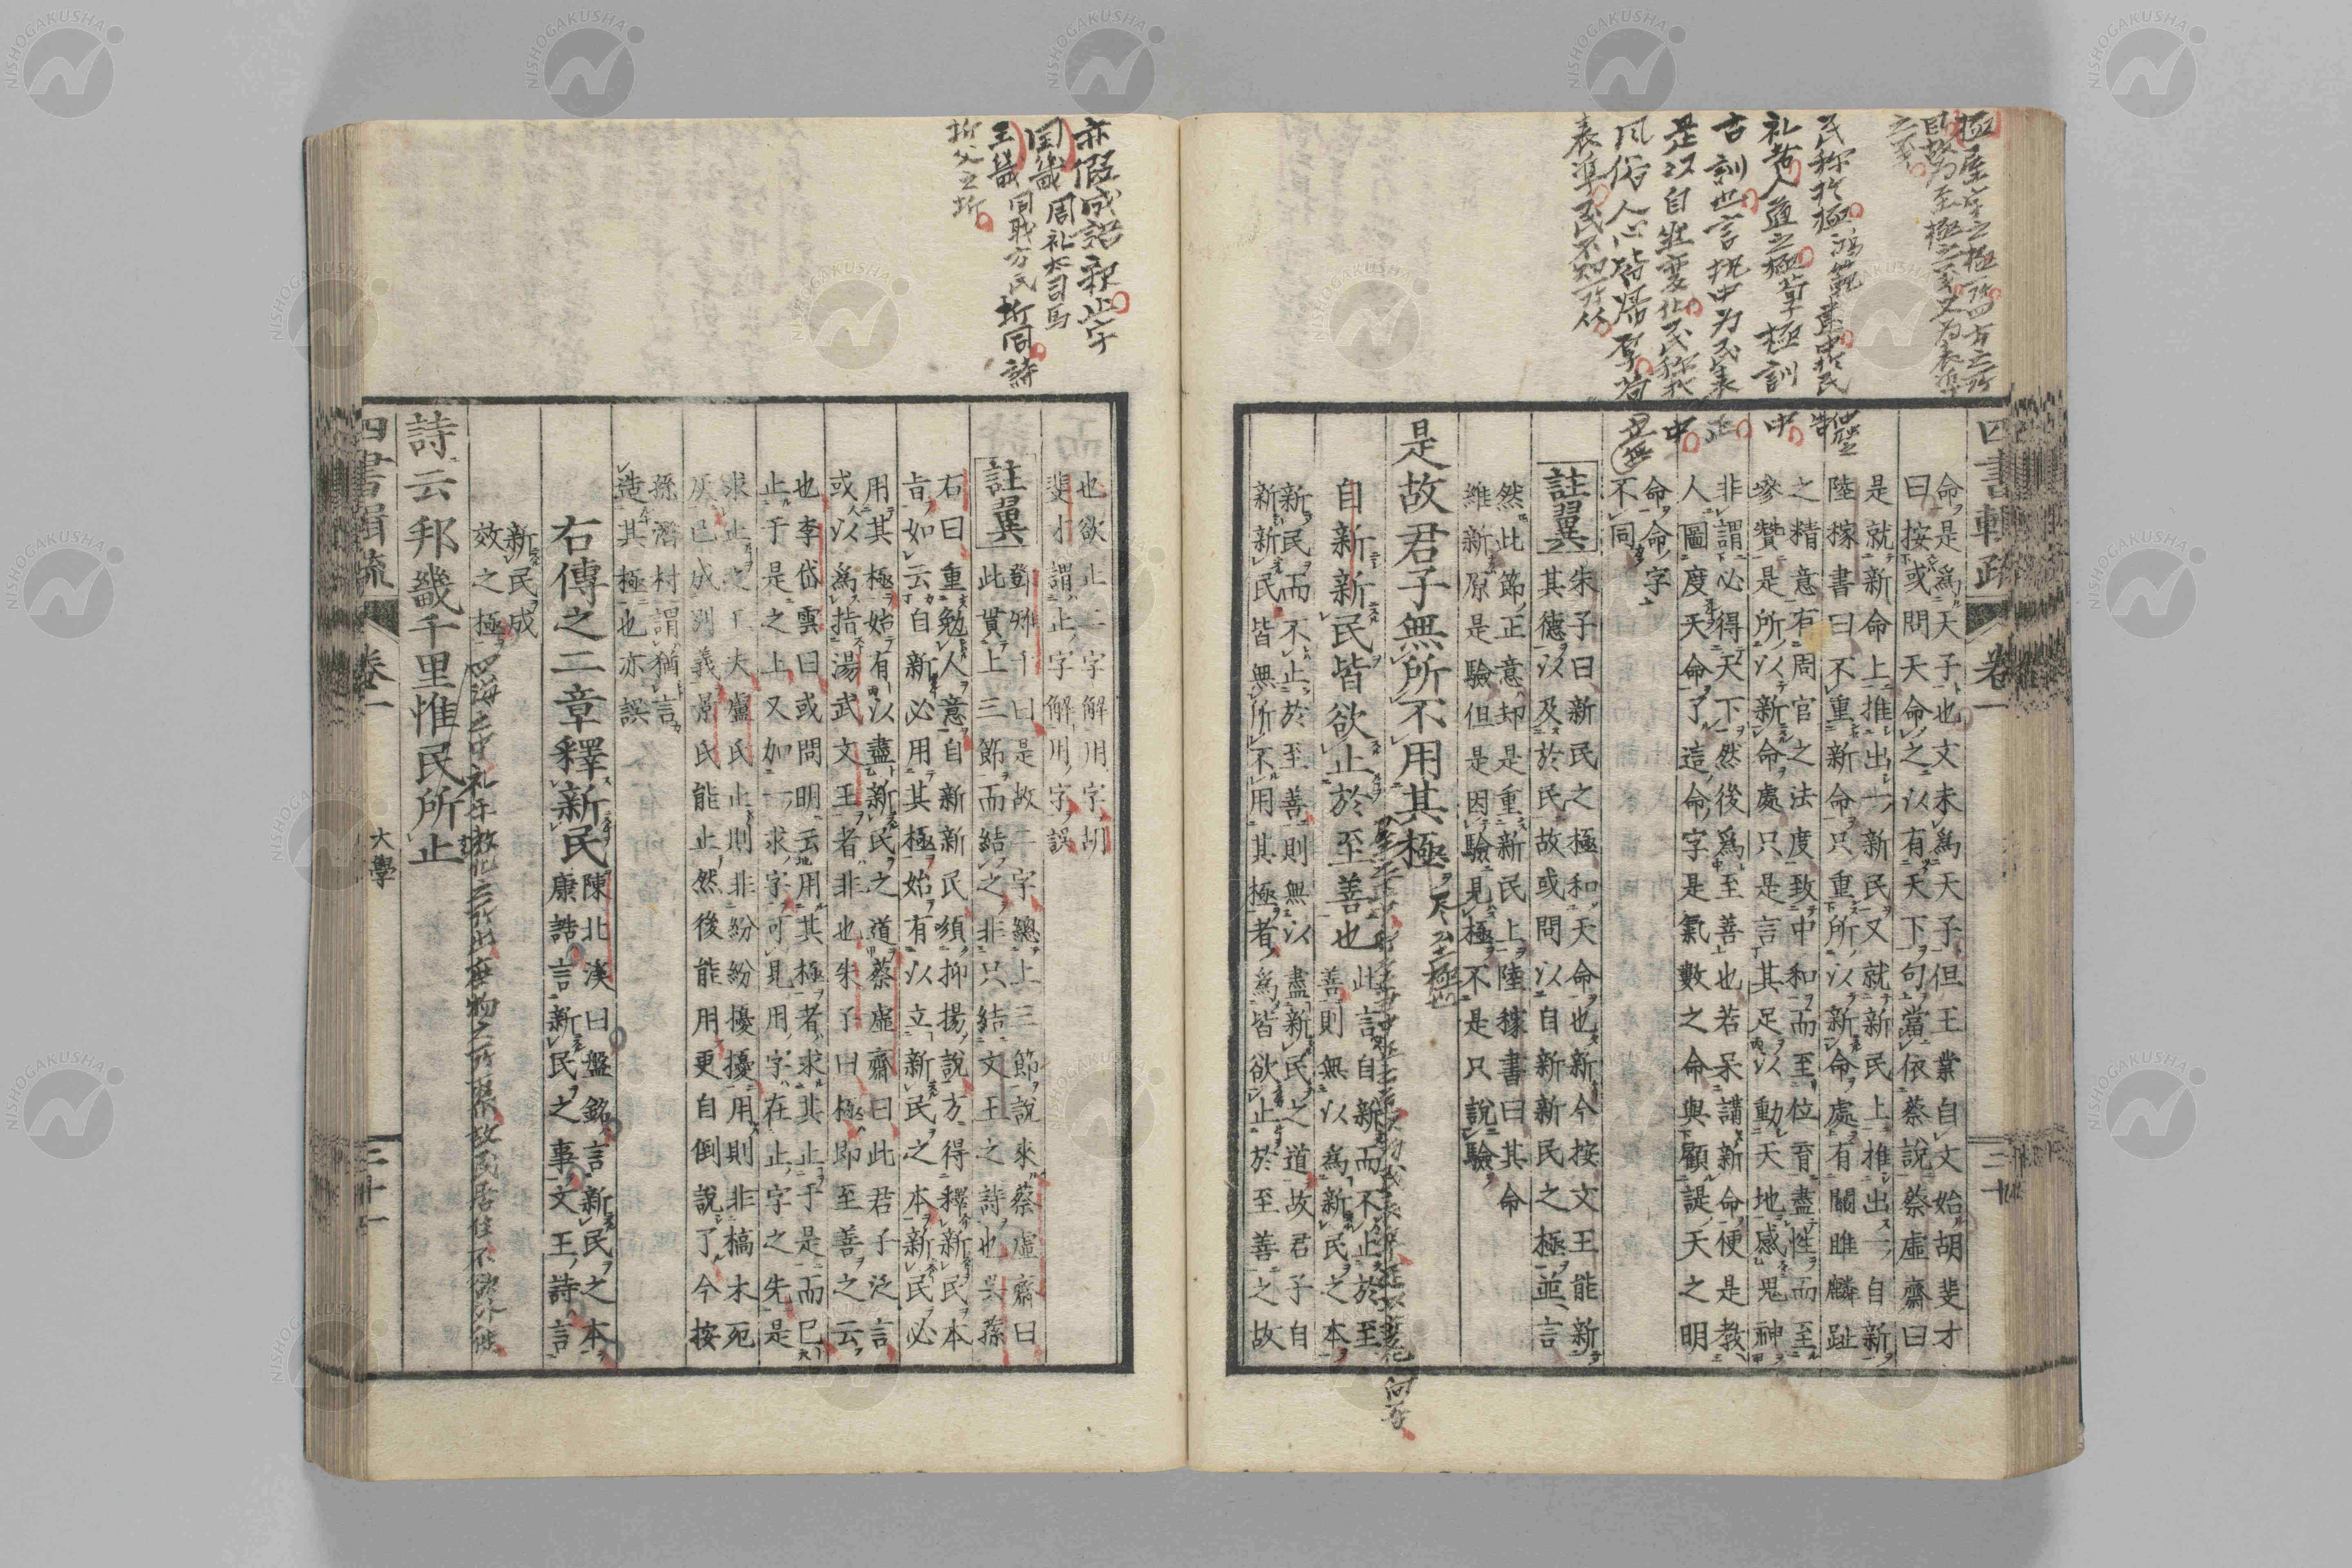 四書輯疏 卷一 三十
民称於極
表準
命是為天子也文未為天子但王業自文始胡斐才
曰按或問天命之以有天下句當依蔡說蔡虛齋曰
是就新命上推出一新民又就新民上推出一自新
陸稼書曰不重新命只重所以新命處有關雎麟趾
之精意有周官之法度致中和而至位育盡性而至
參贊是所以新命處只是言其足以動天地感鬼神
非謂必得天下然後為至善也若呆講新命便是教
人圖度天命了這命字是氣數之命與顧諟天之明
命命字
不同
註翼 朱子曰新民之極和天命也新今按文王能新
其德以及於民故或問以自新新民之極並言
然此節正意却是重新民上陸稼書曰其命
維新原是驗但是因驗見極不是只說驗
是故君子無所不用其極
自新新民皆欲止於至善也 此言自新而不止於至
善則無以為新民之本
新民而不止於至善則無以盡新民之道故君子自
新新民皆無所不用其極者為皆欲止於至善之故
亦假成語釈止字
国畿 周礼大司馬
王畿 同職方氏 圻同 詩
圻父之圻
也欲止二字解用字胡
斐才謂止字解用字誤
註翼 鄧彌千曰是故二字總上三節說來蔡虛齋曰
此貫上三節而結之非只結文王之詩也吳蓀
右曰重勉人意自新新民須抑揚說方得釋新民本
旨如云自新必用其極始有以立新民之本新民必
用其極始有以盡新民之道蔡虛齋曰此君子泛言
或以為指湯武文王者非也朱子曰極即至善之云
也李岱雲曰或問明云用其極者求其止于是而已
止于是之上又如一求字可見用字在止字之先是
求止之工夫盧氏止則非紛紛擾擾用則非槁木死
灰已成別義景氏能止然後能用更自倒說了今按
孫潛村謂猶言
造其極也亦誤
右傳之二章釋新民 陳北溪曰盤銘言新民之本
康誥言新民之事文王詩言
新民成
效之極
詩云邦畿千里惟民所止
四書輯疏 卷一 大學 三十一
NISHOGAKUSHA